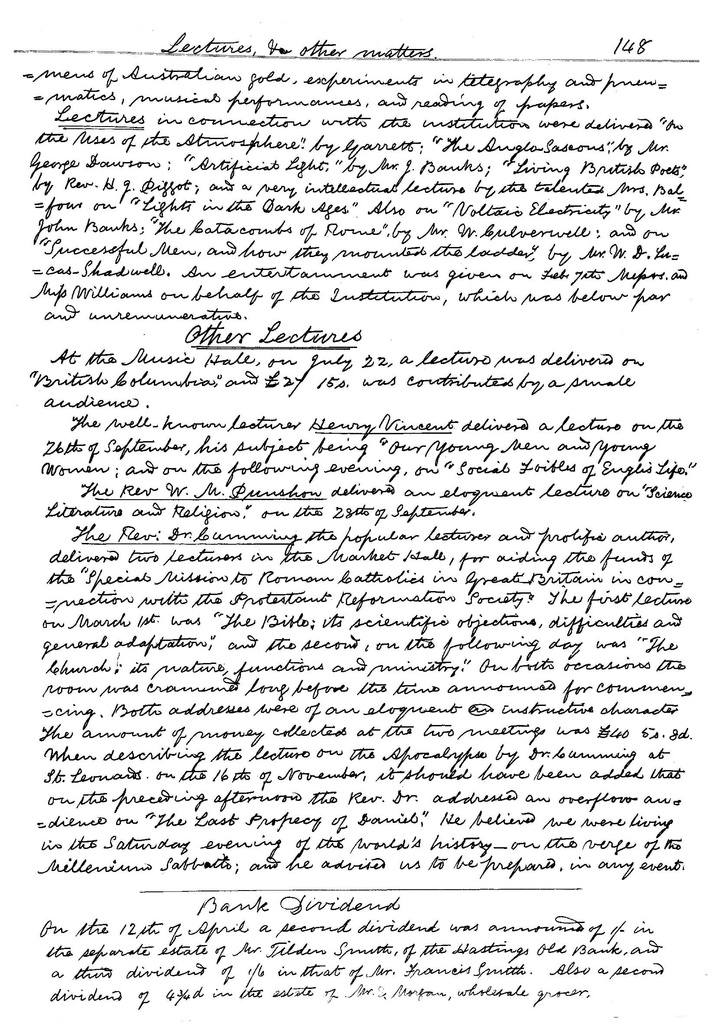 Lectures, & other matters. 148
=mens of Australian gold, experiments in telegraphy and pneu=
=matics, musical performances, and reading of papers.
Lectures in connection with the institution were delivered "On
the Uses of the Atmosphere" by Garrett; "The Anglo Saxons", by Mr.
George Dawson; "Artificial Light," by Mr. J. Banks; "Living British Poets"
by Rev. H. J. Piggot; and a very intellectual lecture by the talented Mrs. Bal-
=four on "Lights in the Dark Ages". Also on "Voltaic Electricity," by Mr.
John Banks; "The Catacombs of Rome", by Mr. W. Culverwell; and on
"Successful Men, and how they mounted the ladder", by Mr. W. D. Lu=
=cas-Shadwell. An entertainment was given on Feb. 7th Messrs. and
Miss Williams on behalf of the Institution, which was below par
and unremunerative.
Other Lectures
At the Music Hall, on July 22, a lecture was delivered on
"British Columbia", and £27 15s. was contributed by a small
audience.
The well-known lecturer Henry Vincent delivered a lecture on the
26th of September, his subject being "Our Young Men and Young
Women; and on the following evening, on "Social Foibles of Englis Life."
The Rev W. M. Punshon delivered an eloquent lecture on "Science
Literature and Religion," on the 28th of September.
The Rev: Dr. Cumming the popular lecturer and prolific author,
delivered two lecturers in the Market Hall, for aiding the funds of
the "Special Mission to Roman Catholics in Great Britain in con=
=nection with the Protestant Reformation Society." The first lecture
on March 1st. was "The Bible; its scientific objections, difficulties and
general adaptation", and the second, on the following day was "The
Church; its nature, functions and ministry." On both occasions the
room was crammed long before the time announced for commen=
=cing. Both addresses were of an eloquent instructive character
The amount of money collected at the two meetings was £40 5s. 3d.
When describing the lecture on the Apocalypse by Dr. Cumming at
St. Leonards on the 16th of November, it should have been added that
on the preceding afternoon the Rev. Dr. addressed an overflow au=
=dience on "The Last Propecy of Daniel". He believed we were living
in the Saturday evening of the world's history — on the verge of the
Millenium Sabbath; and he advised us to be prepared, in any event.
Bank Dividend
On the 12th of April a second dividend was announced of 1/- in
the separate estate of Mr. Tilden Smith, of the Hastings Old Bank, and
a third dividend of 1/6 in that of Mr. Francis Smith. Also a second
dividend of 4¾d in the estate of Mr. Morgan, wholesale grocer.